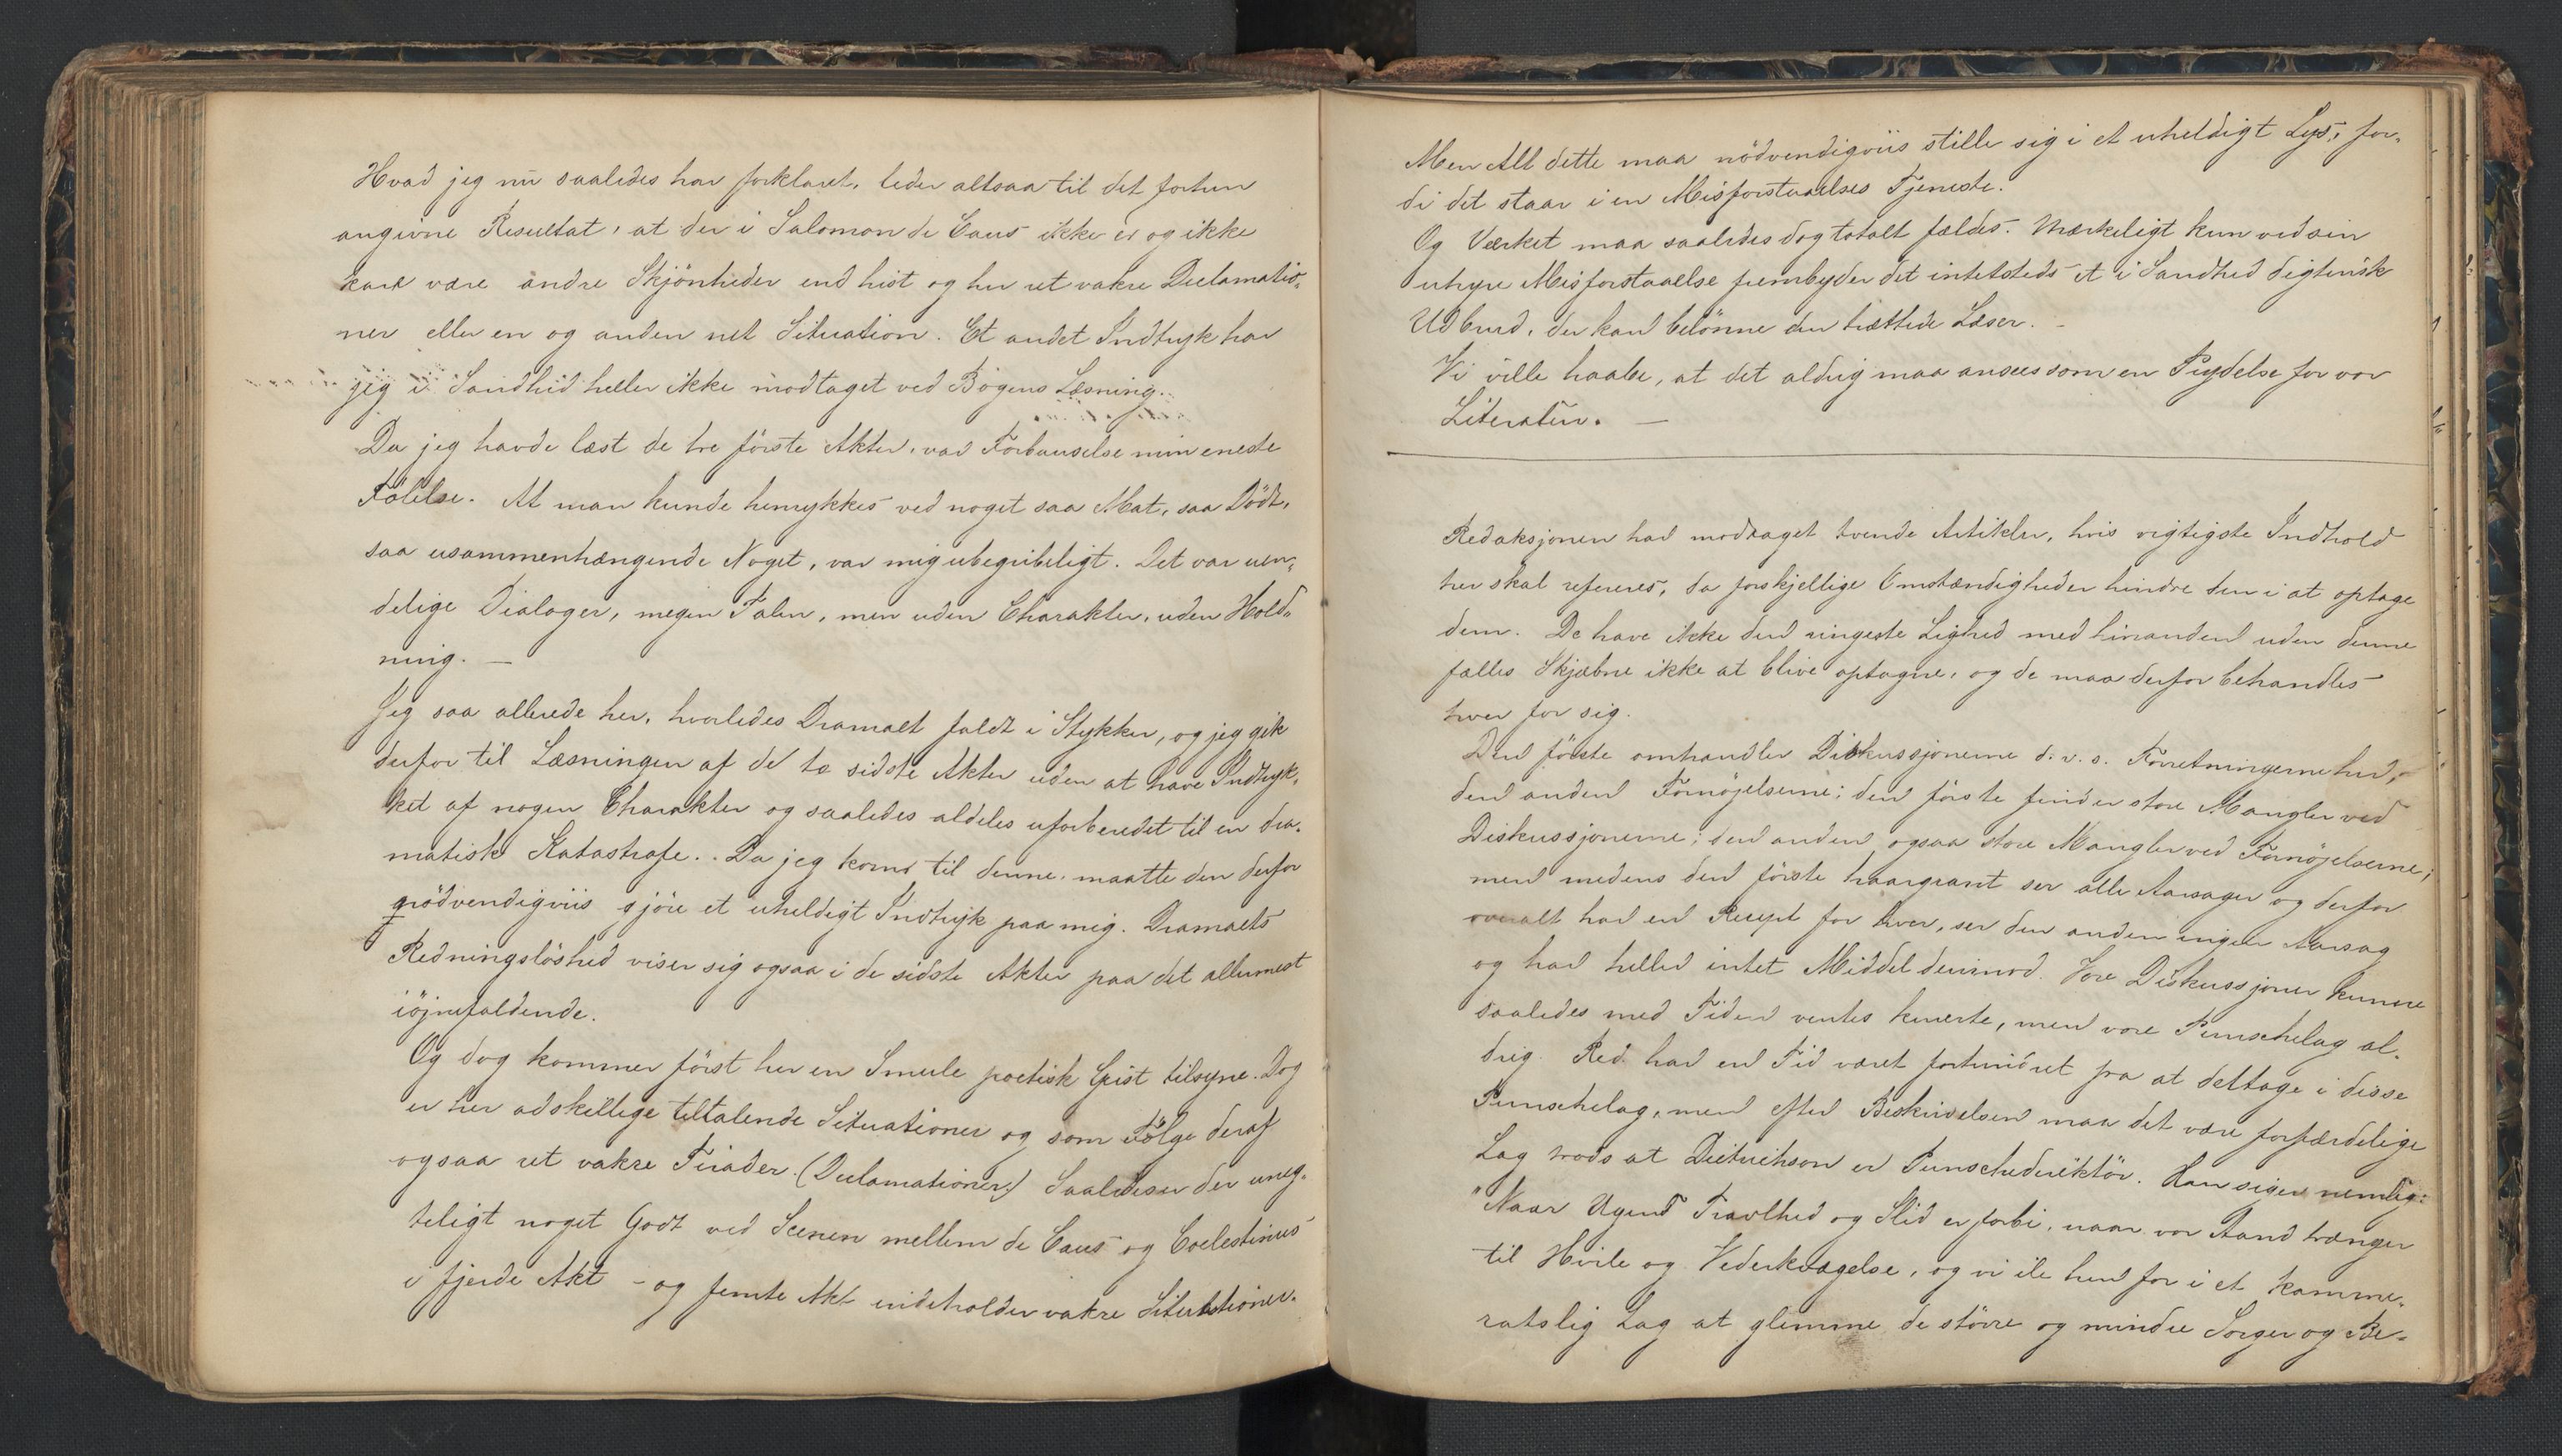 Hvad jeg nu saaledes har forklaret, leder altsaa til det forhen
angivne Resultat, at der i Salomon de Caus ikke er og ikke
kan være andre Skjönheder end hist og her ret vakre Declamatio-
ner eller en og anden net Situation. Et andet Indtryk har
jeg i Sandhed heller ikke modtaget ved Bogens Læsning.
Da jeg havde læst de tre förste Akter, var Forbauselse min eneste
Fölelse. At man kunde henrykkes ved noget saa Mat, saa Dödt,
saa usammenhængende Noget, var mig ubegribeligt. Det var uen-
delige Dialoger, megen Talen, men uden Charakter, uden Hold-
ning. —
Jeg saa allerede her, hvorledes Dramaet faldt i Stykker, og jeg gik
derfor til Læsningen af de to sidste Akter uden at have Indtryk-
ket af nogen Charakter og saaledes aldeles uforberedet til en dra-
matisk Katastrofe. Da jeg kom til denne, maatte den derfor
nödvendigviis gjöre et uheldigt Indtryk paa mig. Dramaets
Redningslöshed viser sig ogsaa i de sidste Akter paa det allermest
iöjnefaldende.
Og dog kommer först her en Smule poetisk Geist tilsyne. Dog
er her adskillige tiltalende Situationer og som Fölge deraf
ogsaa ret vakre Tirader (Declamationer) Saaledes er der uneg-
teligt noget Godt ved Scenen mellem de Caus og Coelestinus
i fjerde Akt – og femte Akt indeholder vakre Situationer.
Men Alt dette maa nödvendigviis stille sig i et uheldigt Lys, for-
di det staar i en Misforstaaelses Tjeneste.
Og Værket maa saaledes dog totalt fældes. Mærkeligt kun ved sin
uhyre Misforstaaelse frembyder det intetsteds et i Sandhed digterisk
Udbund, der kan belönne den trættede Læser. –
Vi ville haabe, at det aldrig maa ansees som en Prydelse for vor
Literatur. —
Redaksjonen har modtaget tvende Artikler, hvis vigtigste Indhold
her skal refereres, da forskjellige Omstændigheder hindre den i at optage
dem. De have ikke den ringeste Lighed med hinanden uden denne
fælles Skjæbne ikke at blive optagne, og de maa derfor behandles
hver for sig.
Den förste omhandler Diskussjonerne d. v. s. Forretningerne her,
den anden Fornöjelserne; den förste finder store Mangler ved
Diskussjonerne; den anden ogsaa store Mangler ved Fornöjelserne;
men medens den förste haargrant ser alle Aarsager og derfor
overalt har en Recept for hver, ser den anden ingen Aarsag
og har heller intet Middel derimod. Vore Diskussjoner kunne
saaledes med Tiden ventes kurerte, men vore Punschelag al-
drig. Red. har en Tid været forhindret fra at deltage i disse
Punschelag, men efter Beskrivelsen maa det være forfærdelige
Lag trods at Dietrichson er Punschedirektör. Han siger nemlig:
"Naar Ugens Travlhed og Slid er forbi, naar vor Aand trænger
til Hvile og Vederkvægelse, og vi ile hen for i et kamme-
ratslig Lag at glemme de större og mindre Sorger og Be-